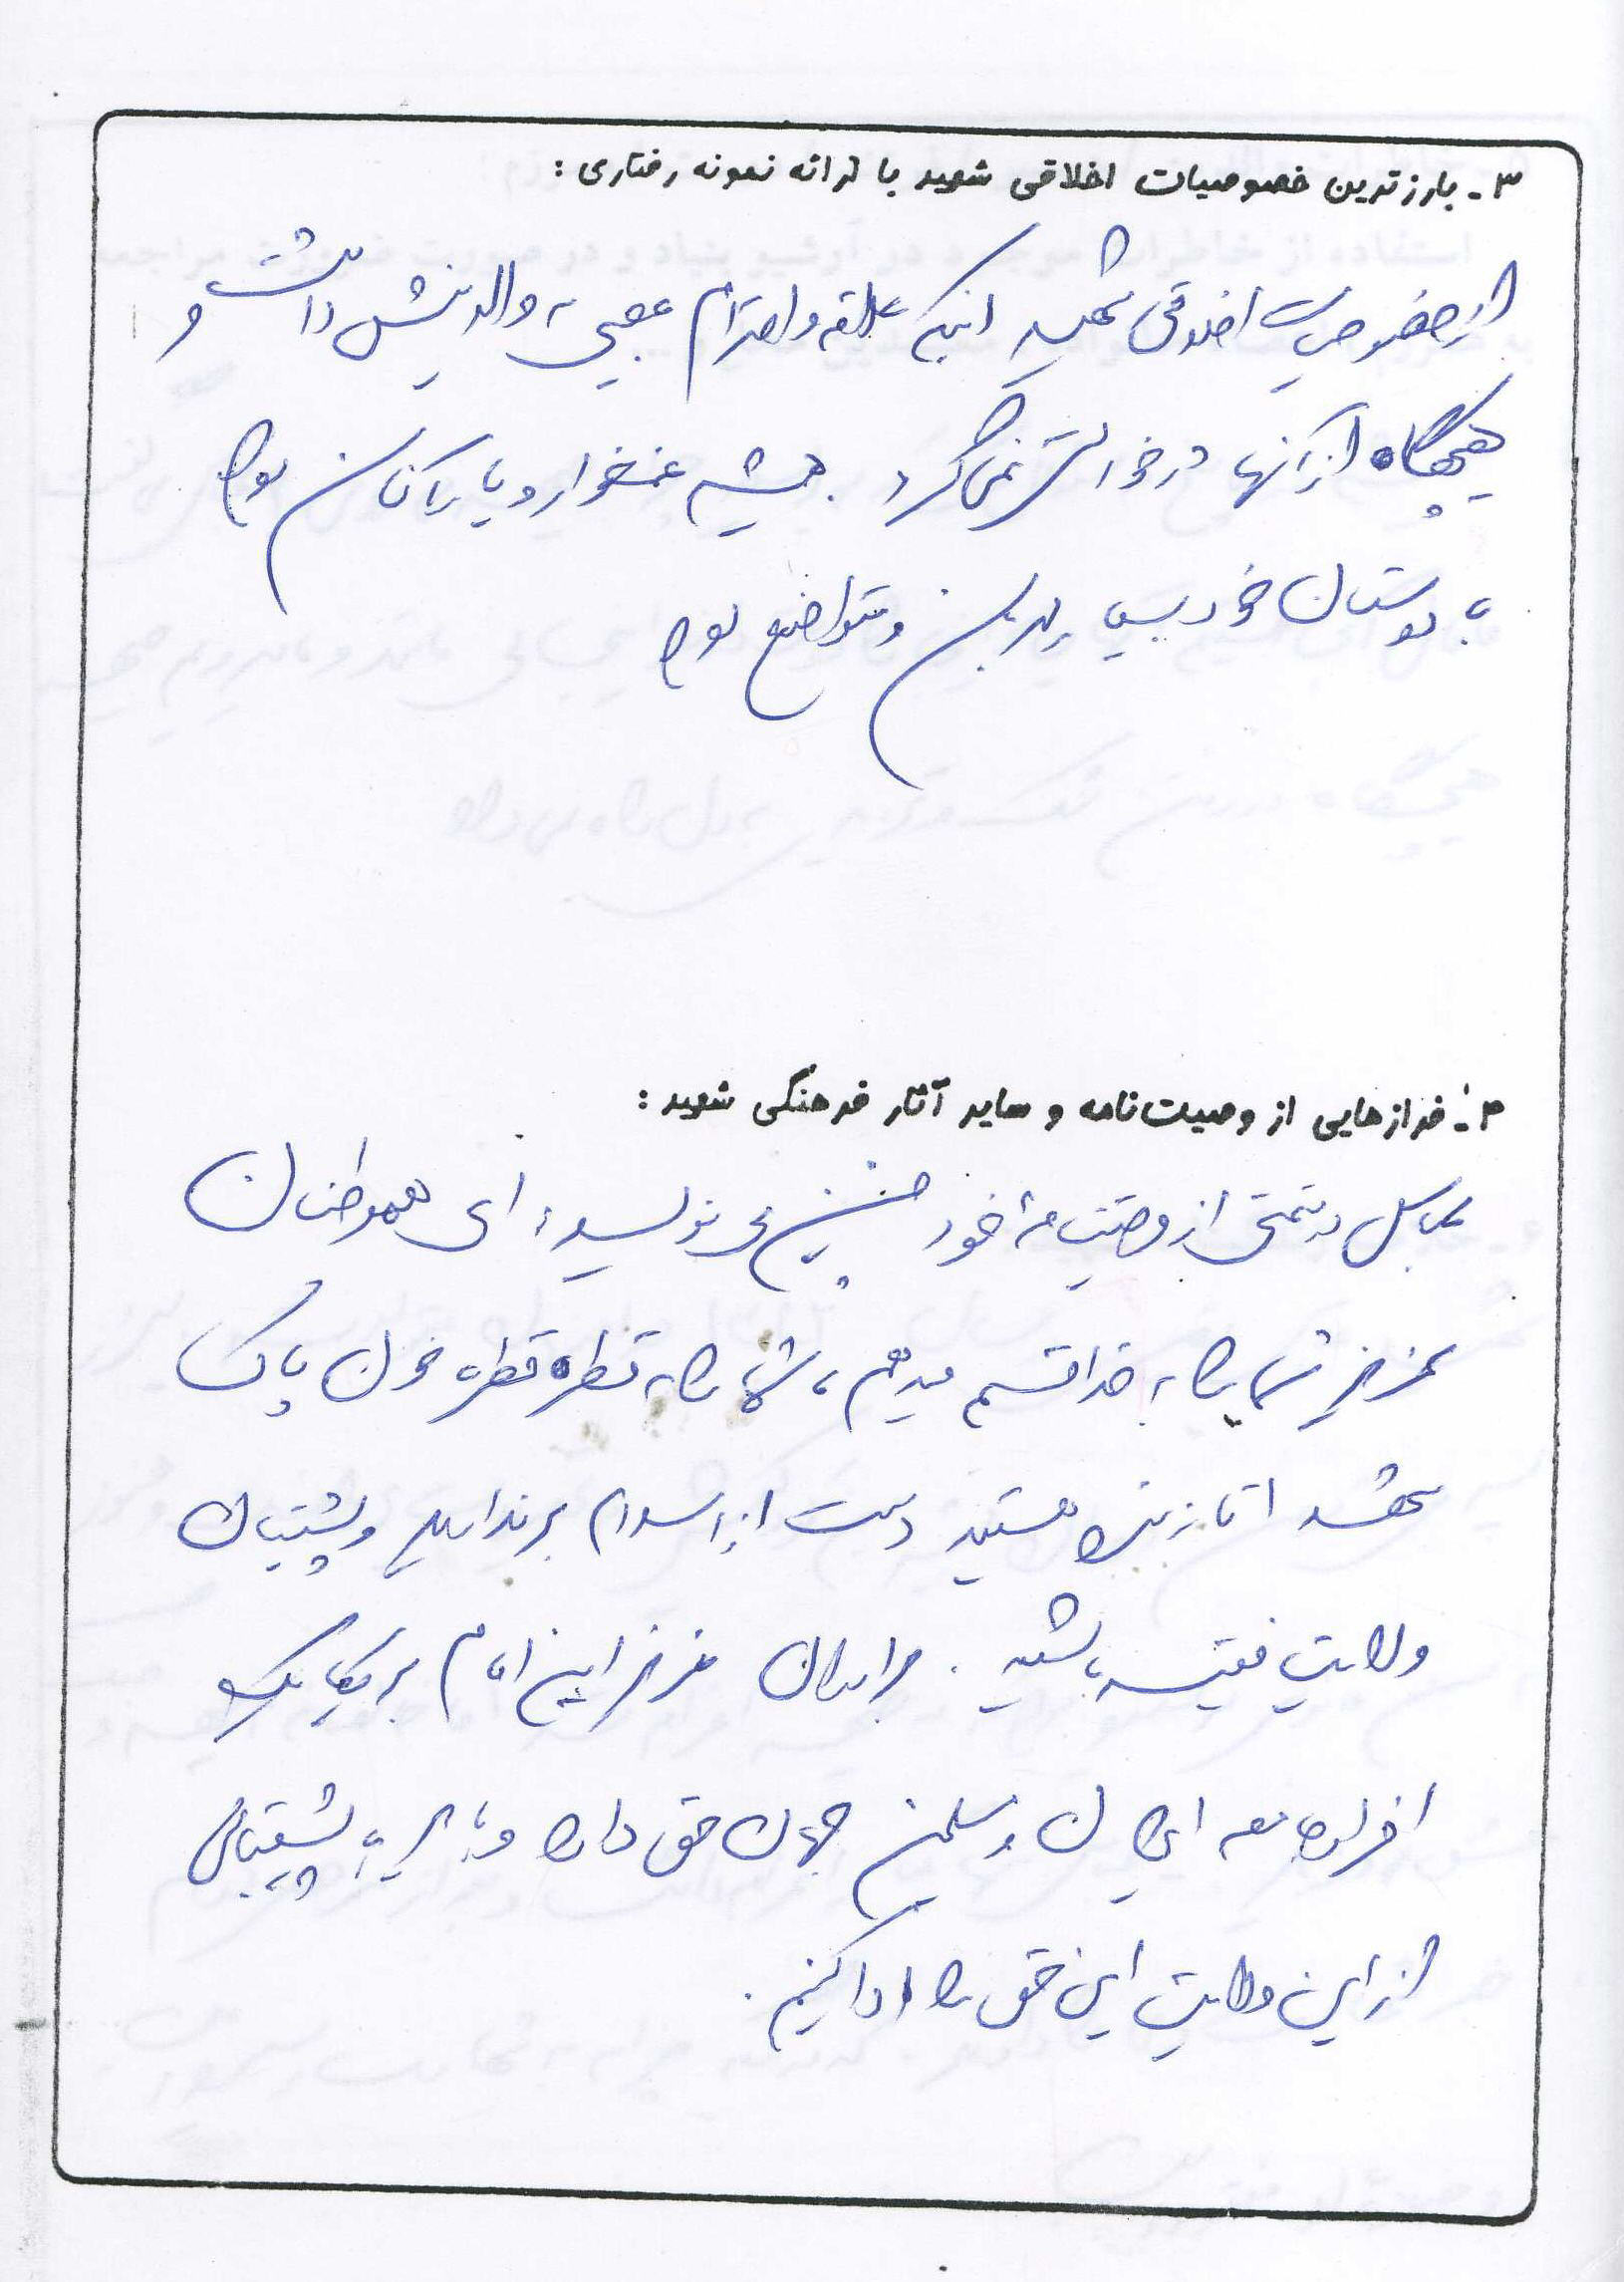 ۳ـ بارزترین خصوصیات اخلاقی شهید با ارائه نمونه رفتاری :
از خصوصیات اخلاقی شهید اینکه علاقه و احترام عجیبی به والدینش داشت و
هیچگاه از آنها درخواستی نمی کرد . همیشه غمخوار و یار آنان بود
با دوستان خود بسیار مهربان و متواضع بود
۴ـ فرازهایی از وصیت‌نامه و سایر آثار فرهنگی شهید :
در قسمتی از وصیتنامه خود چنین می نویسد: ای هموطنان
عزیز شما را به خدا قسم میدهم، شما را به قطره قطره خون پاک
شهدا تا زنده هستید دست از اسلام برندارید و پشتیبان
ولایت فقیه باشید . برادران عزیز این امام بر یکایک
افراد جامعه ایران و مسلمین جهان حق دارد و باید با پشتیبانی
از این ولایت این حق را ادا کنیم .